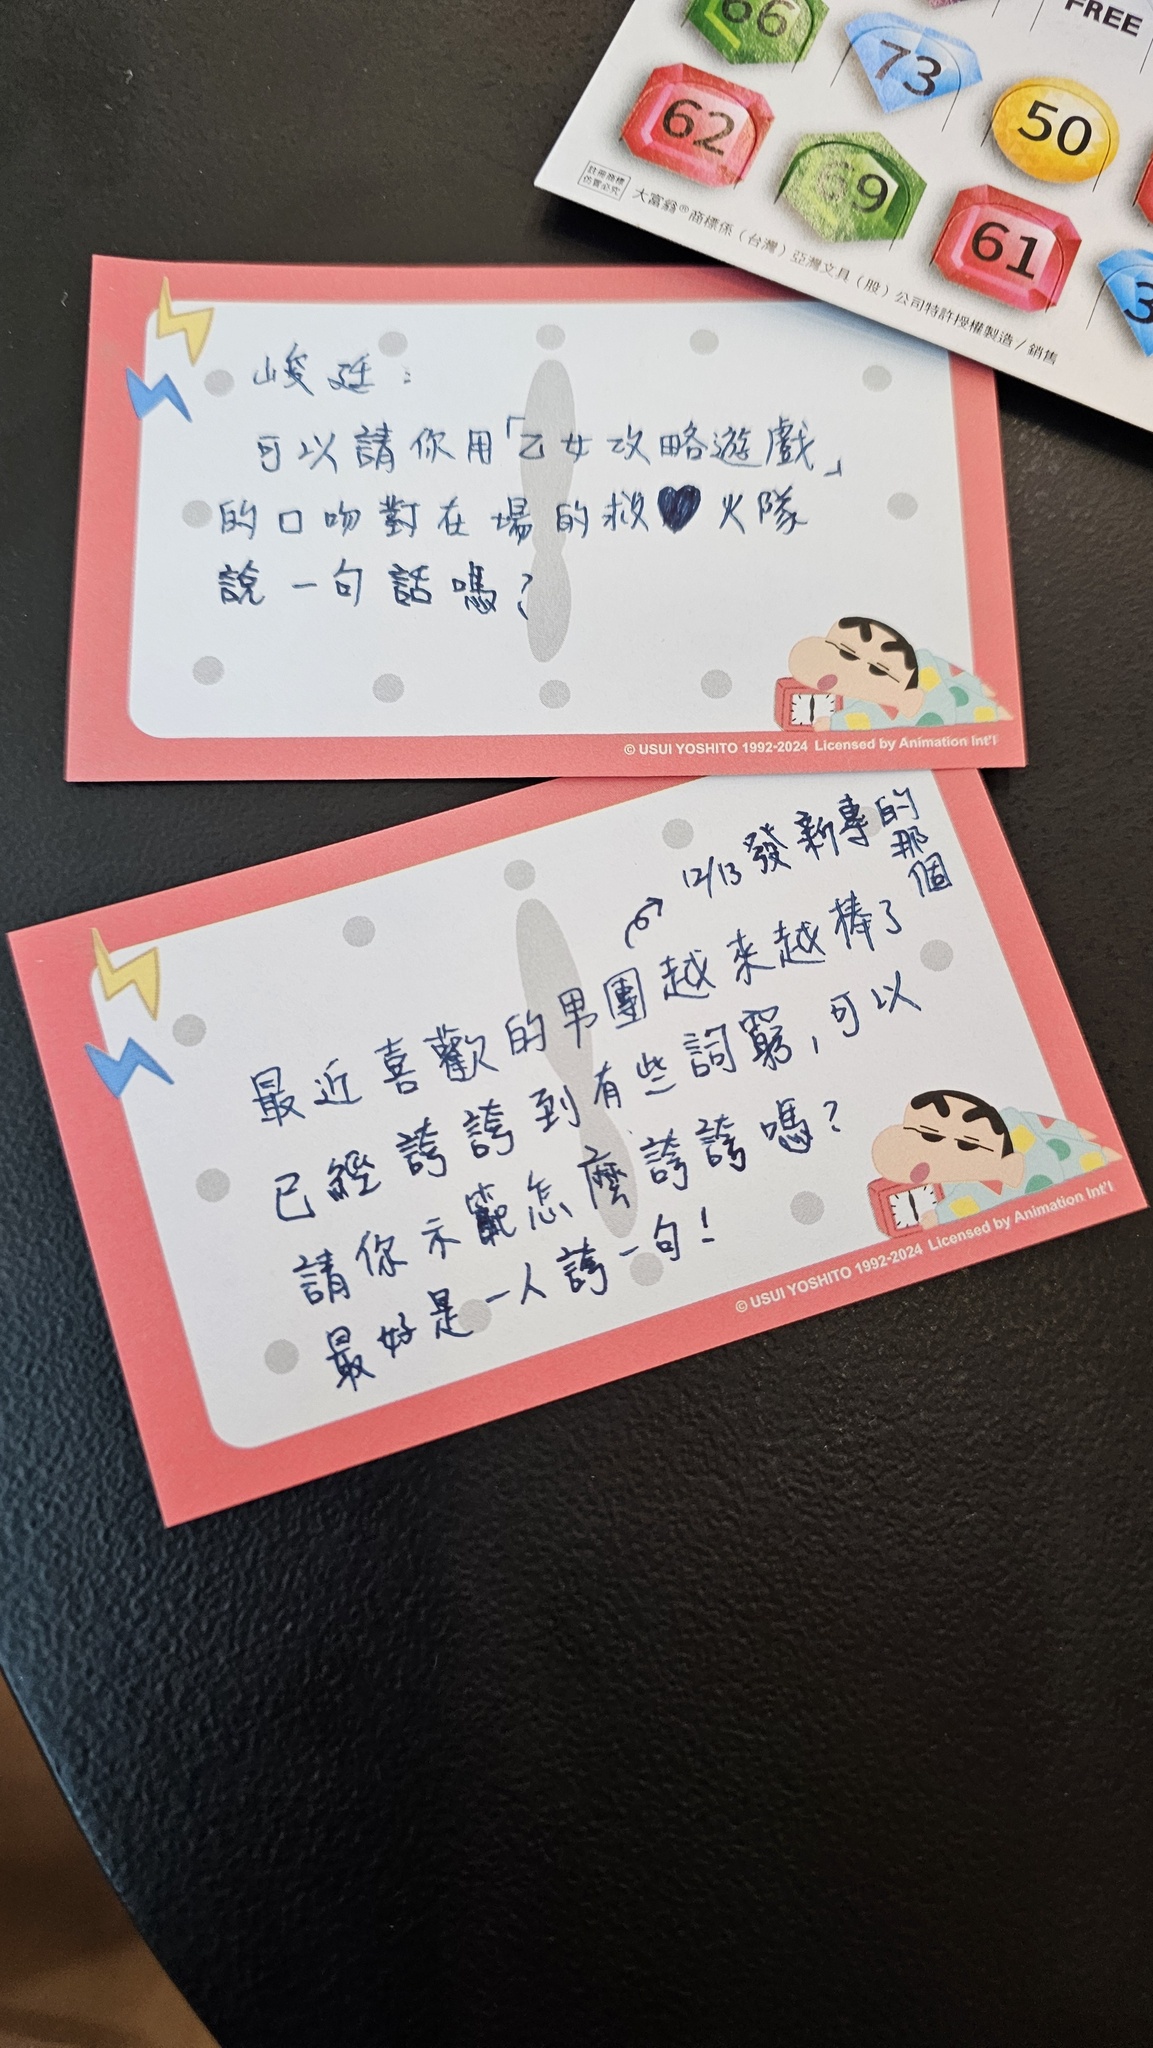 66
73
FREE
62
69
50
61
3
註冊商標
仿冒必究
大富翁®商標係（台灣）亞灣文具（股）公司特許授權製造／銷售
峻廷：
可以請你用「乙女攻略遊戲」
的口吻對在場的救♥火隊
說一句話嗎？
© USUI YOSHITO 1992-2024 Licensed by Animation Int'l
12/13 發新專的那個
最近喜歡的男團越來越棒了
已經誇誇到有些詞窮，可以
請你示範怎麼誇誇嗎？
最好是一人誇一句！
© USUI YOSHITO 1992-2024 Licensed by Animation Int'l